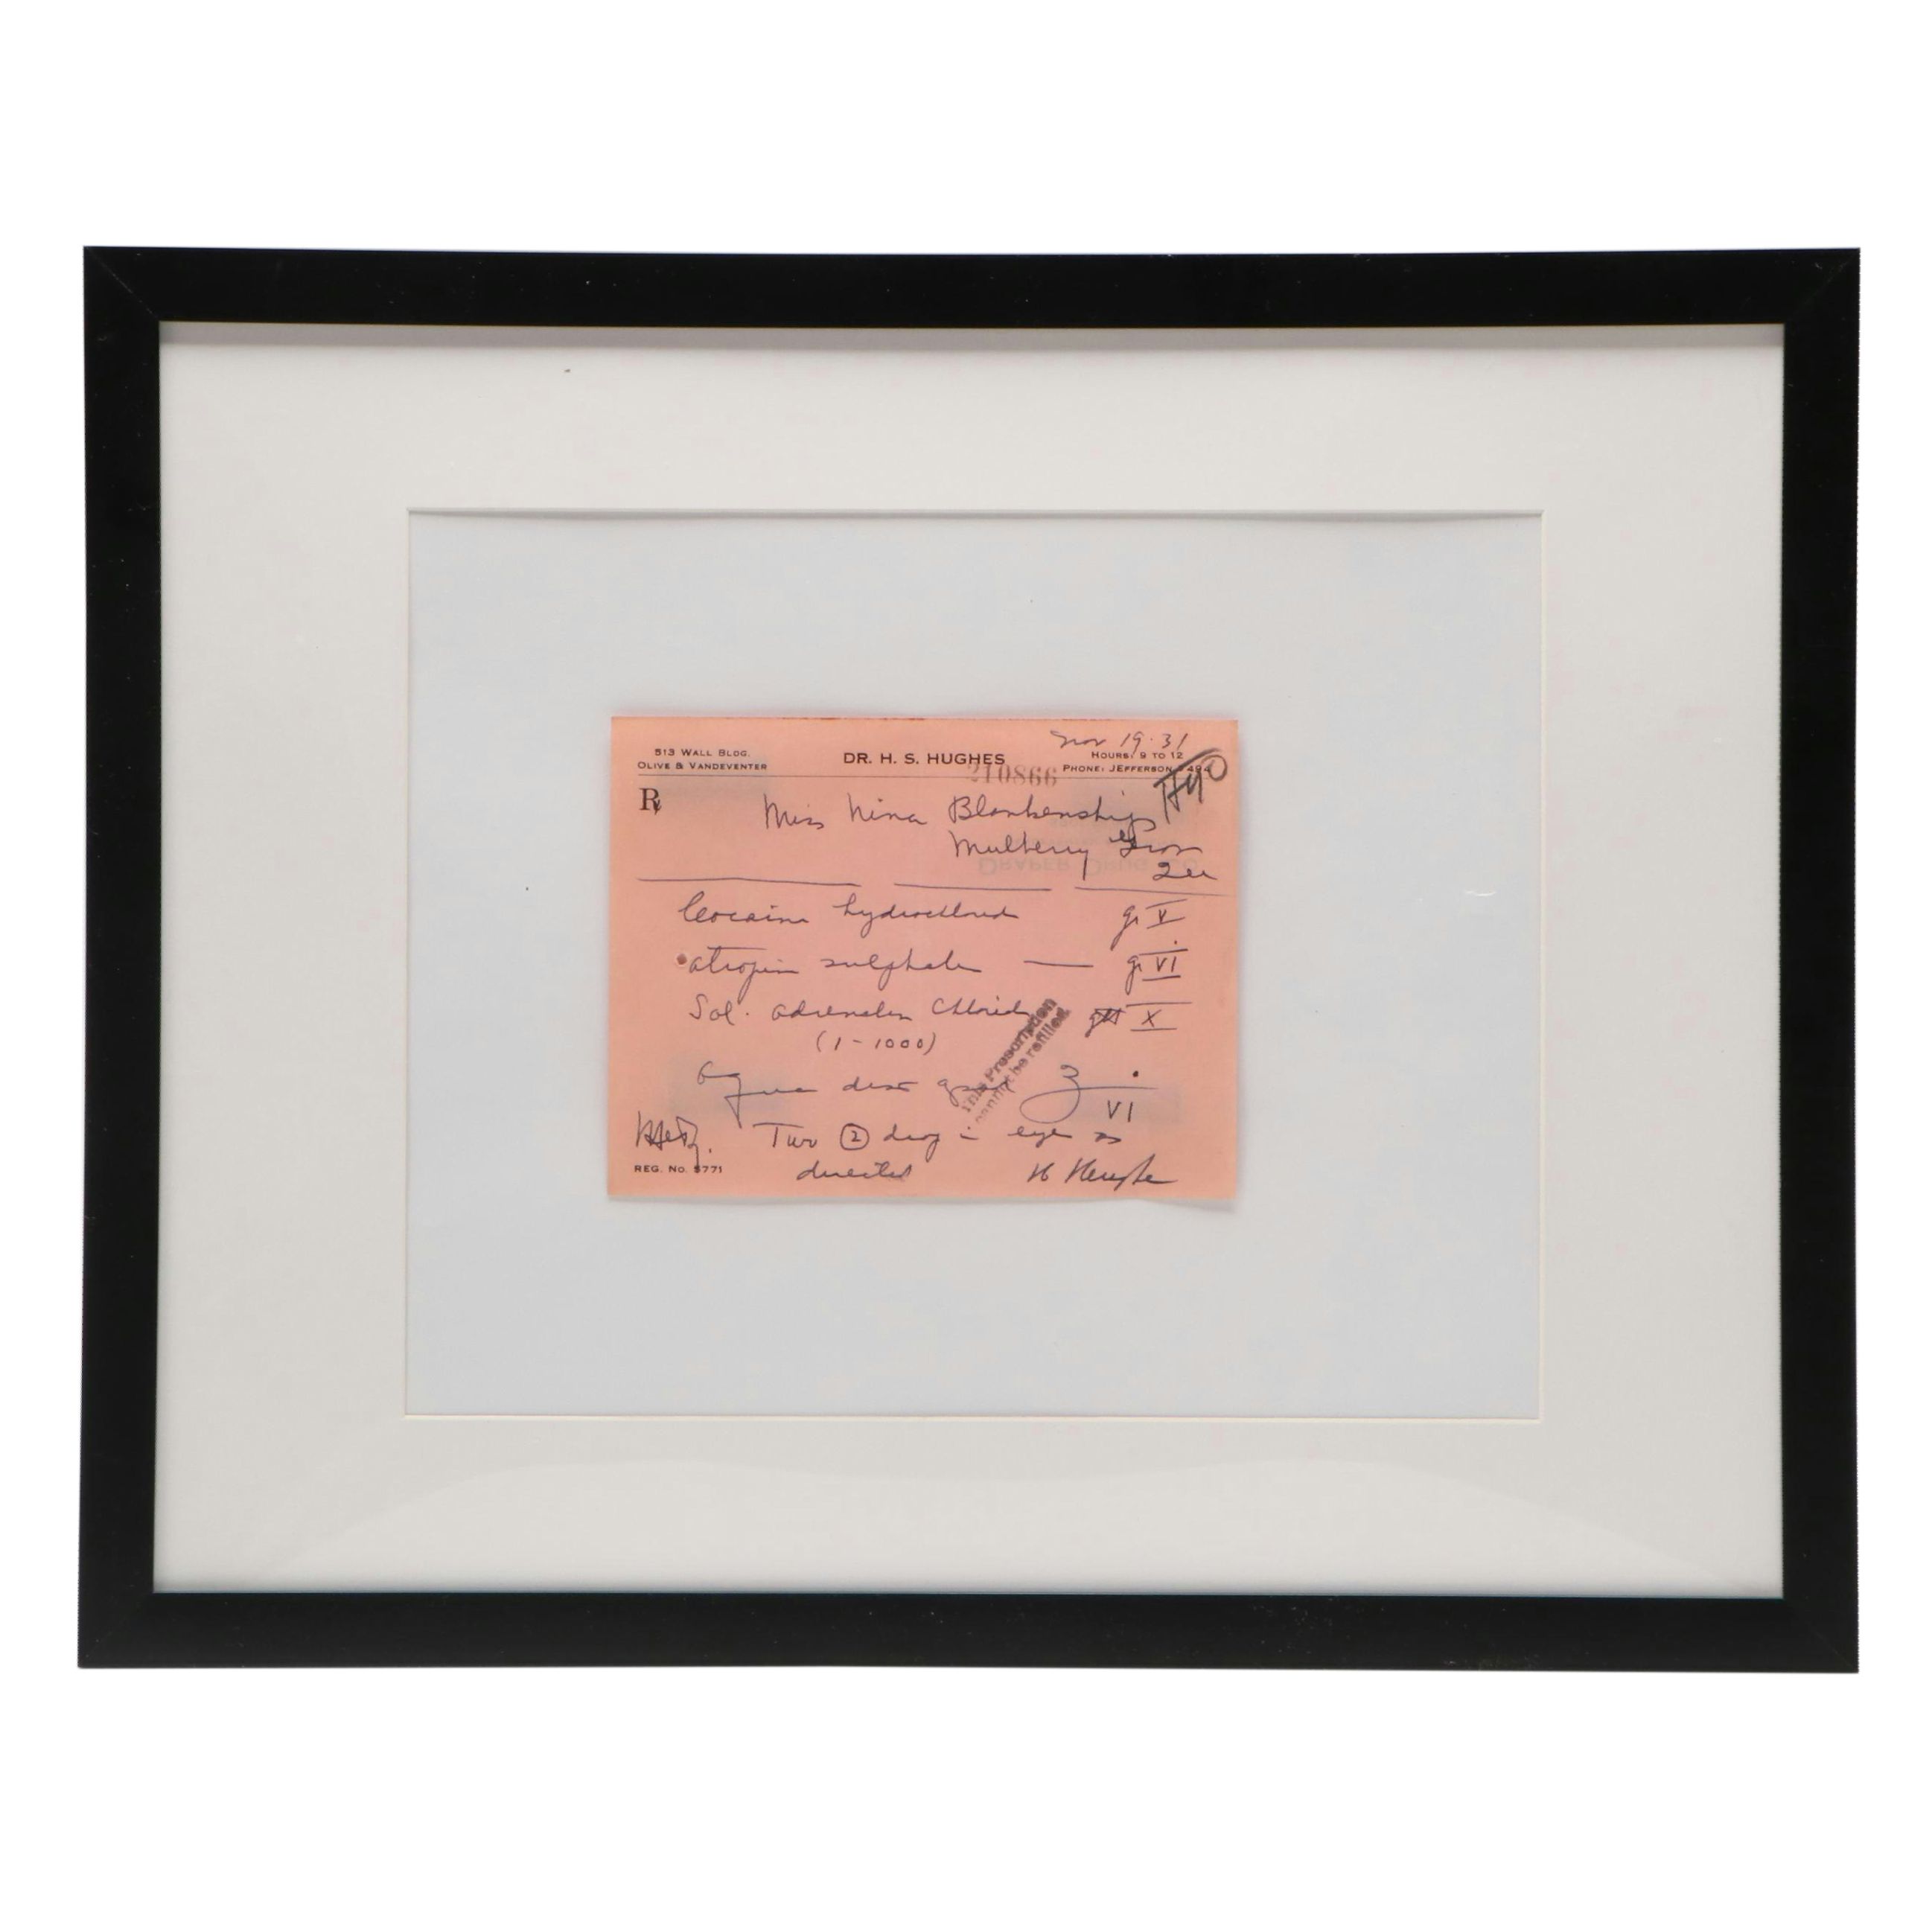 Nov 19·31
513 WALL BLDG.
OLIVE & VANDEVENTER
DR. H. S. HUGHES
HOURS: 9 TO 12
PHONE: JEFFERSON 494
210866
R
Miss Nina Blankenship
Mulberry Grov
DRAPER DRUG CO.
Cocain hydrochlorid gr V
atropin sulphate — gr VI
Sol. adrenalin chlorid gtt X
(1-1000)
aqua dest ʒ VI
This Prescription
cannot be refilled
Two ② drop in eye as
directed
H Hughes
REG. NO. 5771